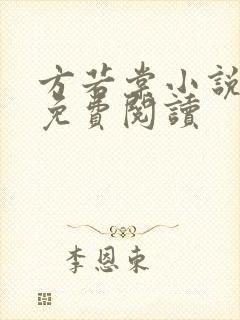 方若棠小說
免費閱讀
李恩東